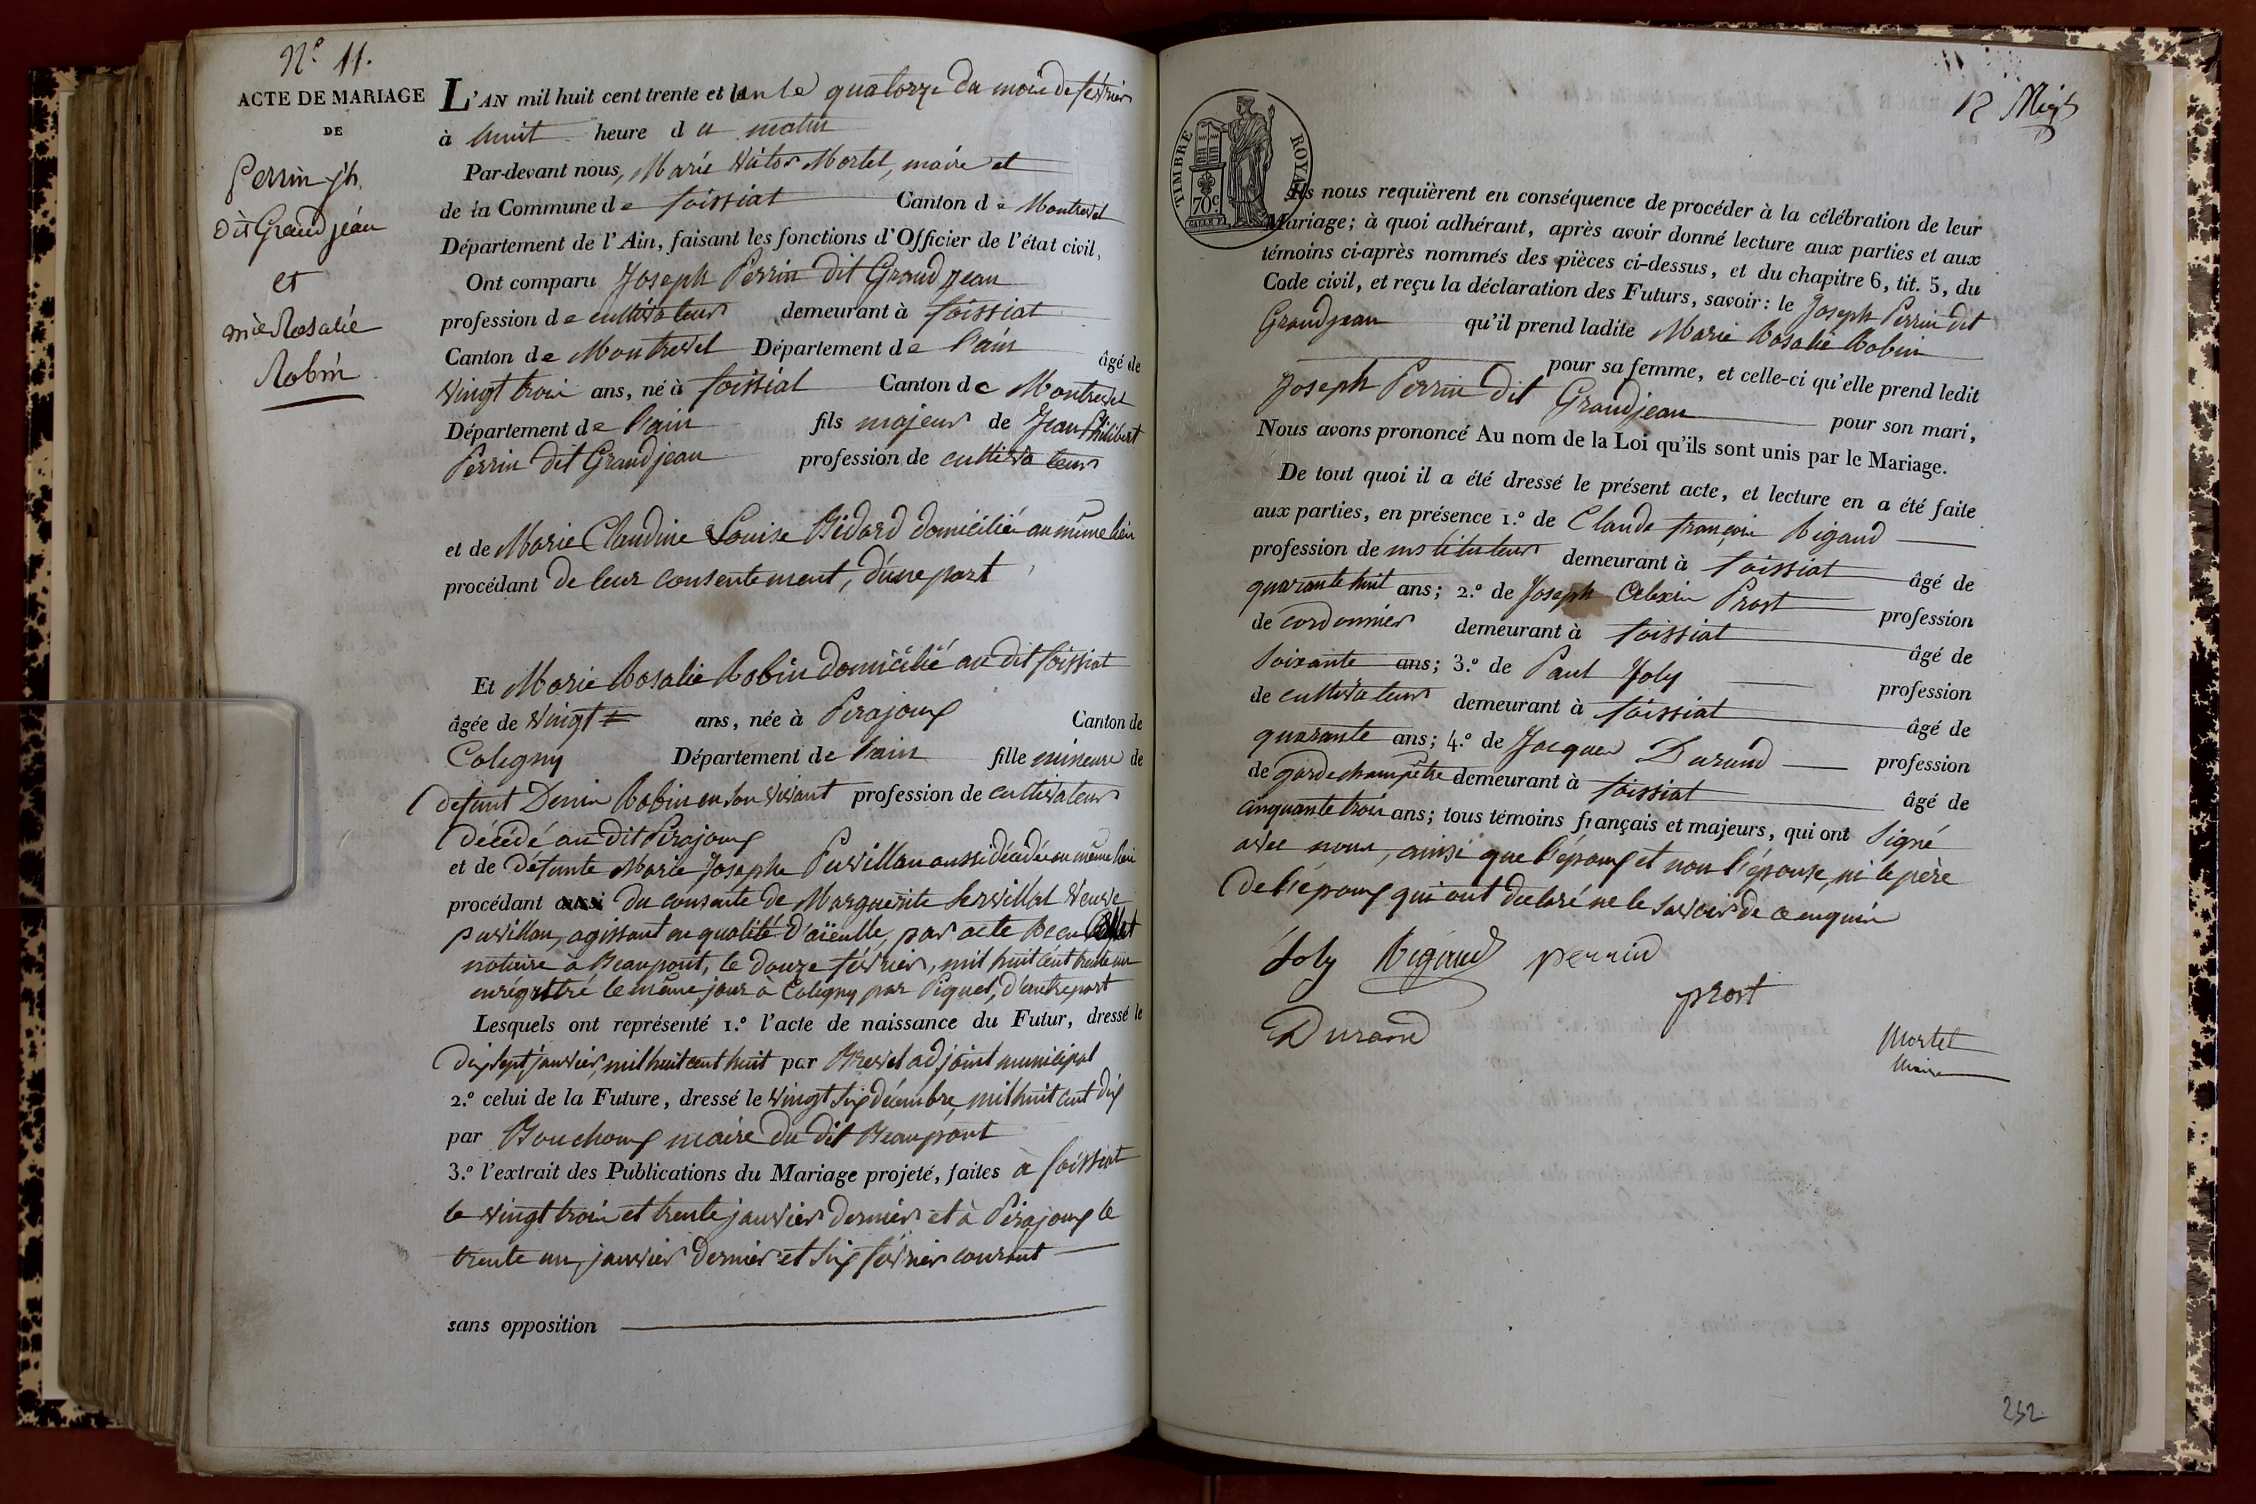 N.º 11.
ACTE DE MARIAGE
DE
Perrin jh.
dit Grandjean
et
mie Rosalie
Robin
L'AN mil huit cent trente et un le quatorze du mois de février
à huit heure du matin
Par-devant nous, Marie Victor Mortel, maire et
de la Commune de foissiat Canton de Montrevel
Département de l'Ain, faisant les fonctions d'Officier de l'état civil,
Ont comparu Joseph Perrin dit Grand Jean
profession de cultivateur demeurant à foissiat
Canton de Montrevel Département de l'ain âgé de
vingt trois ans, né à foissiat Canton de Montrevel
Département de l'ain fils majeur de Jean Philibert
Perrin dit Grandjean profession de cultivateur
et de Marie Claudine Louise Bidard domicilié au même lieu
procédant de leur consentement, d'une part
Et Marie Rosalie Robin domicilié au dit foissiat
âgée de vingt ans, née à Pirajoux Canton de
Coligny Département de l'ain fille mineure de
défunt Denis Robin en son vivant profession de cultivateur
décédé au dit Pirajoux
et de défunte Marie Josephe Puvillan aussi décédée au même lieu
procédant du consente de Marguerite Servillat veuve
puvillan, agissant en qualité d'aïeulle, par acte Recu
notaire à Beaupont, le douze février, mil huit cent trente un
enrégistré le même jour à Coligny par Piquet, d'autre part
Lesquels ont représenté 1.º l'acte de naissance du Futur, dressé le
dix sept janvier, mil huit cent huit par Brevet adjoint municipal
2.º celui de la Future, dressé le vingt six décembre, mil huit cent dix
par Bouchoux maire du dit Beaupont
3.º l'extrait des Publications du Mariage projeté, faites à foissiat
le vingt trois et trente janvier dernier et à Pirajoux le
trente un, janvier dernier et six février courant
sans opposition
12 Mgs
TIMBRE ROYAL
70c
Ils nous requièrent en conséquence de procéder à la célébration de leur
Mariage; à quoi adhérant, après avoir donné lecture aux parties et aux
témoins ci-après nommés des pièces ci-dessus, et du chapitre 6, tit. 5, du
Code civil, et reçu la déclaration des Futurs, savoir: le Joseph Perrin dit
Grandjean qu'il prend ladite Marie Rosalie Robin
pour sa femme, et celle-ci qu'elle prend ledit
Joseph Perrin dit Grandjean pour son mari,
Nous avons prononcé Au nom de la Loi qu'ils sont unis par le Mariage.
De tout quoi il a été dressé le présent acte, et lecture en a été faite
aux parties, en présence 1.º de Claude françois Rigaud
profession de instituteur demeurant à foissiat âgé de
quarante huit ans; 2.º de Joseph Alexis Prost profession
de cordonnier demeurant à foissiat âgé de
soixante ans; 3.º de Paul Joly profession
de cultivateur demeurant à foissiat âgé de
quarante ans; 4.º de Jacques Durand profession
de garde champêtre demeurant à foissiat âgé de
cinquante trois ans; tous témoins français et majeurs, qui ont signé
avec nous, ainsi que l'époux et non l'épouse, ni le père
de l'époux qui ont declaré ne le savoir de ce enquis
Joly Rigaud perrin
prost
Durand
Mortel
Maire
232